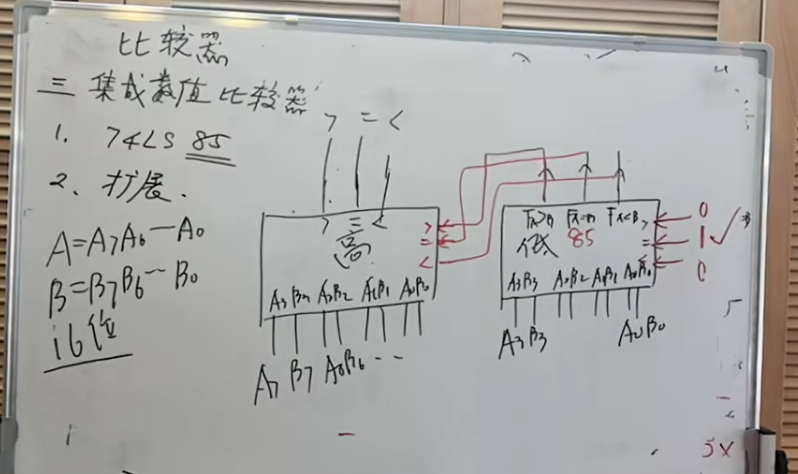 比较器
三 集成数值比较器
1. 74LS 85
2. 扩展.
A=A7A6—A0
B=B7B6--B0
16位
> = <
> = <
高
>
=
<
A3 B3 A2B2 A1B1 A0B0
A7 B7 A6B6 --
FA>B FA=B FA<B
低 85
>
=
<
A3B3 A2B2 A1B1 A0B0
A3 B3 A0B0
0
1 ✓
0
5×